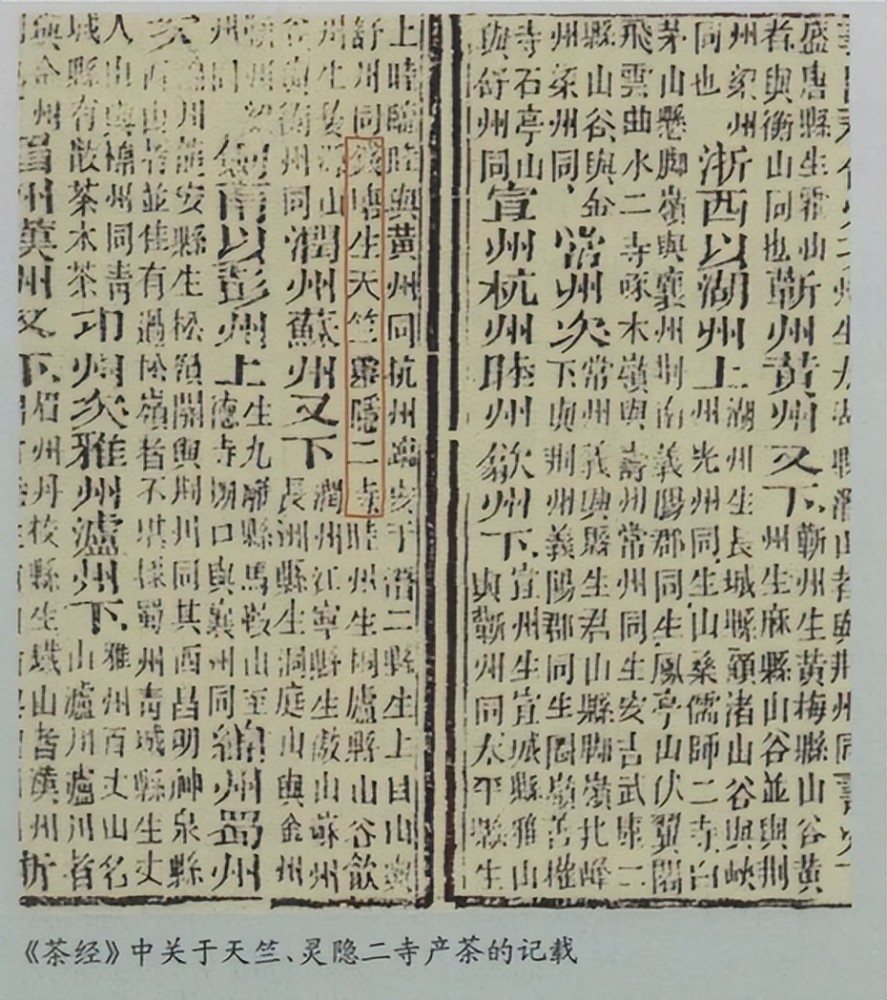 盛唐縣生霍山
者與衡山同也
蘄州黃州又下
蘄州生黃梅縣山谷黃
州生麻縣山谷並與荆
州梁州
同也
浙西以湖州上
湖州生長城縣顧渚山谷與峽
州光州同生山桑儒師二寺白
茅山懸脚嶺與襄州荆南義陽郡同生鳳亭山伏翼閣
飛雲曲水二寺啄木嶺與壽州常州同生安吉武康二
縣山谷與金
州梁州同
常州次
常州義興縣生君山縣脚嶺北峰
下與荆州義陽郡同生圈嶺善權
寺石亭山
與舒州同
宣州杭州睦州歙州下
宣州生宣城縣雅山
與蘄州同太平縣生
上睦臨睦與黃州同杭州臨安于潛二縣生上目山與
舒州同錢塘生天竺靈隱二寺睦州生桐廬縣山谷歙
州生婺源山
谷與衡州同
潤州蘇州又下
潤州江寧縣生傲山蘇州
長洲縣生洞庭山與金州
州同
劍南以彭州上
生九隴縣馬鞍山至
德寺堋口與襄州同
綿州蜀州
次
州龍安縣生松嶺關與荆州同其西昌明神泉縣
西山者並佳有過松嶺者不堪採蜀州青城縣生丈
人山與綿州同青
城縣有散茶木茶
邛州次雅州瀘州下
雅州百丈山名
山瀘川瀘川者
與金州
眉州漢州又下
眉州丹校縣生鐵山者漢州
《茶经》中关于天竺、灵隐二寺产茶的记载